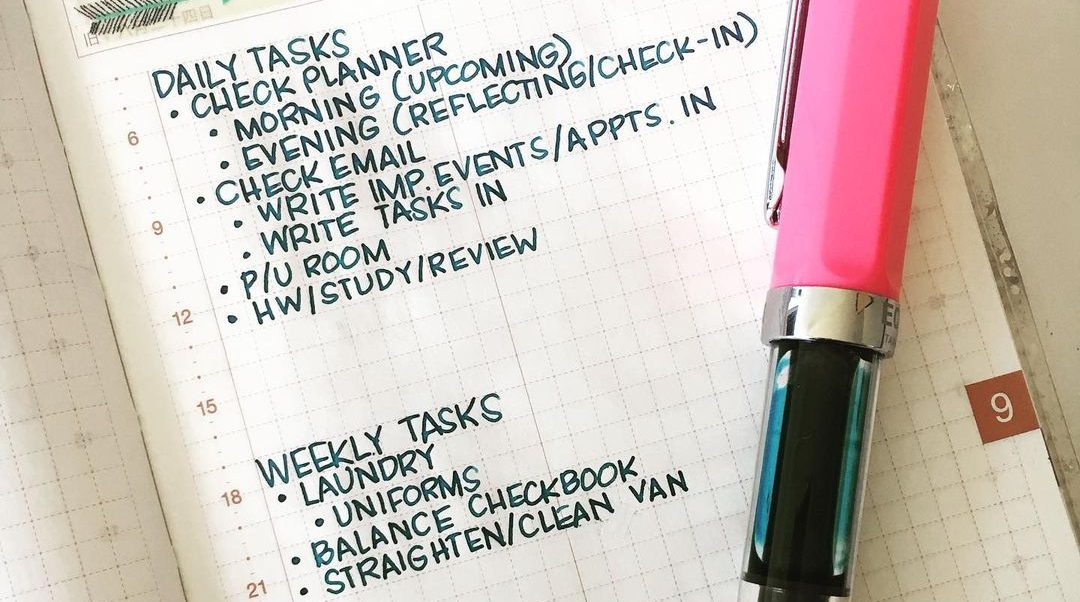 十四日
DAILY TASKS
• CHECK PLANNER
• MORNING (UPCOMING)
• EVENING (REFLECTING/CHECK-IN)
• CHECK EMAIL
• WRITE IMP. EVENTS/APPTS. IN
• WRITE TASKS IN
• P/U ROOM
• HW/STUDY/REVIEW
WEEKLY TASKS
• LAUNDRY
• UNIFORMS
• BALANCE CHECKBOOK
• STRAIGHTEN/CLEAN VAN
6
9
12
15
18
21
9